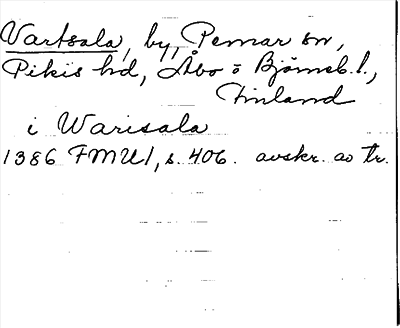 Vartsala, by, Pemar sn,
Pikis hd, Åbo o Björneb. l.,
Finland
i Warisala
1386 FMU 1, s. 406. avskr. av tr.